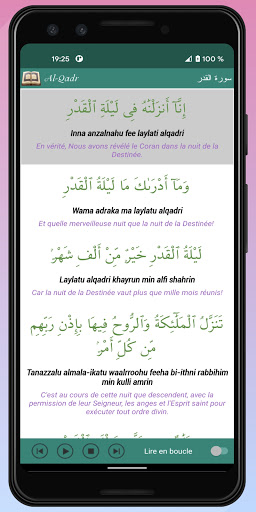 19:25
Al-Qadr
سورة القدر
إِنَّآ أَنزَلْنَٰهُ فِى لَيْلَةِ ٱلْقَدْرِ
Inna anzalnahu fee laylati alqadri
En vérité, Nous avons révélé le Coran dans la nuit de la
Destinée.
وَمَآ أَدْرَىٰكَ مَا لَيْلَةُ ٱلْقَدْرِ
Wama adraka ma laylatu alqadri
Et quelle merveilleuse nuit que la nuit de la Destinée!
لَيْلَةُ ٱلْقَدْرِ خَيْرٌ مِّنْ أَلْفِ شَهْرٍ
Laylatu alqadri khayrun min alfi shahrin
Car la nuit de la Destinée vaut plus que mille mois réunis!
تَنَزَّلُ ٱلْمَلَٰٓئِكَةُ وَٱلرُّوحُ فِيهَا بِإِذْنِ رَبِّهِم
مِّن كُلِّ أَمْرٍ
Tanazzalu almala-ikatu waalrroohu feeha bi-ithni rabbihim
min kulli amrin
C'est au cours de cette nuit que descendent, avec la
permission de leur Seigneur, les anges et l'Esprit saint pour
exécuter tout ordre divin.
Lire en boucle